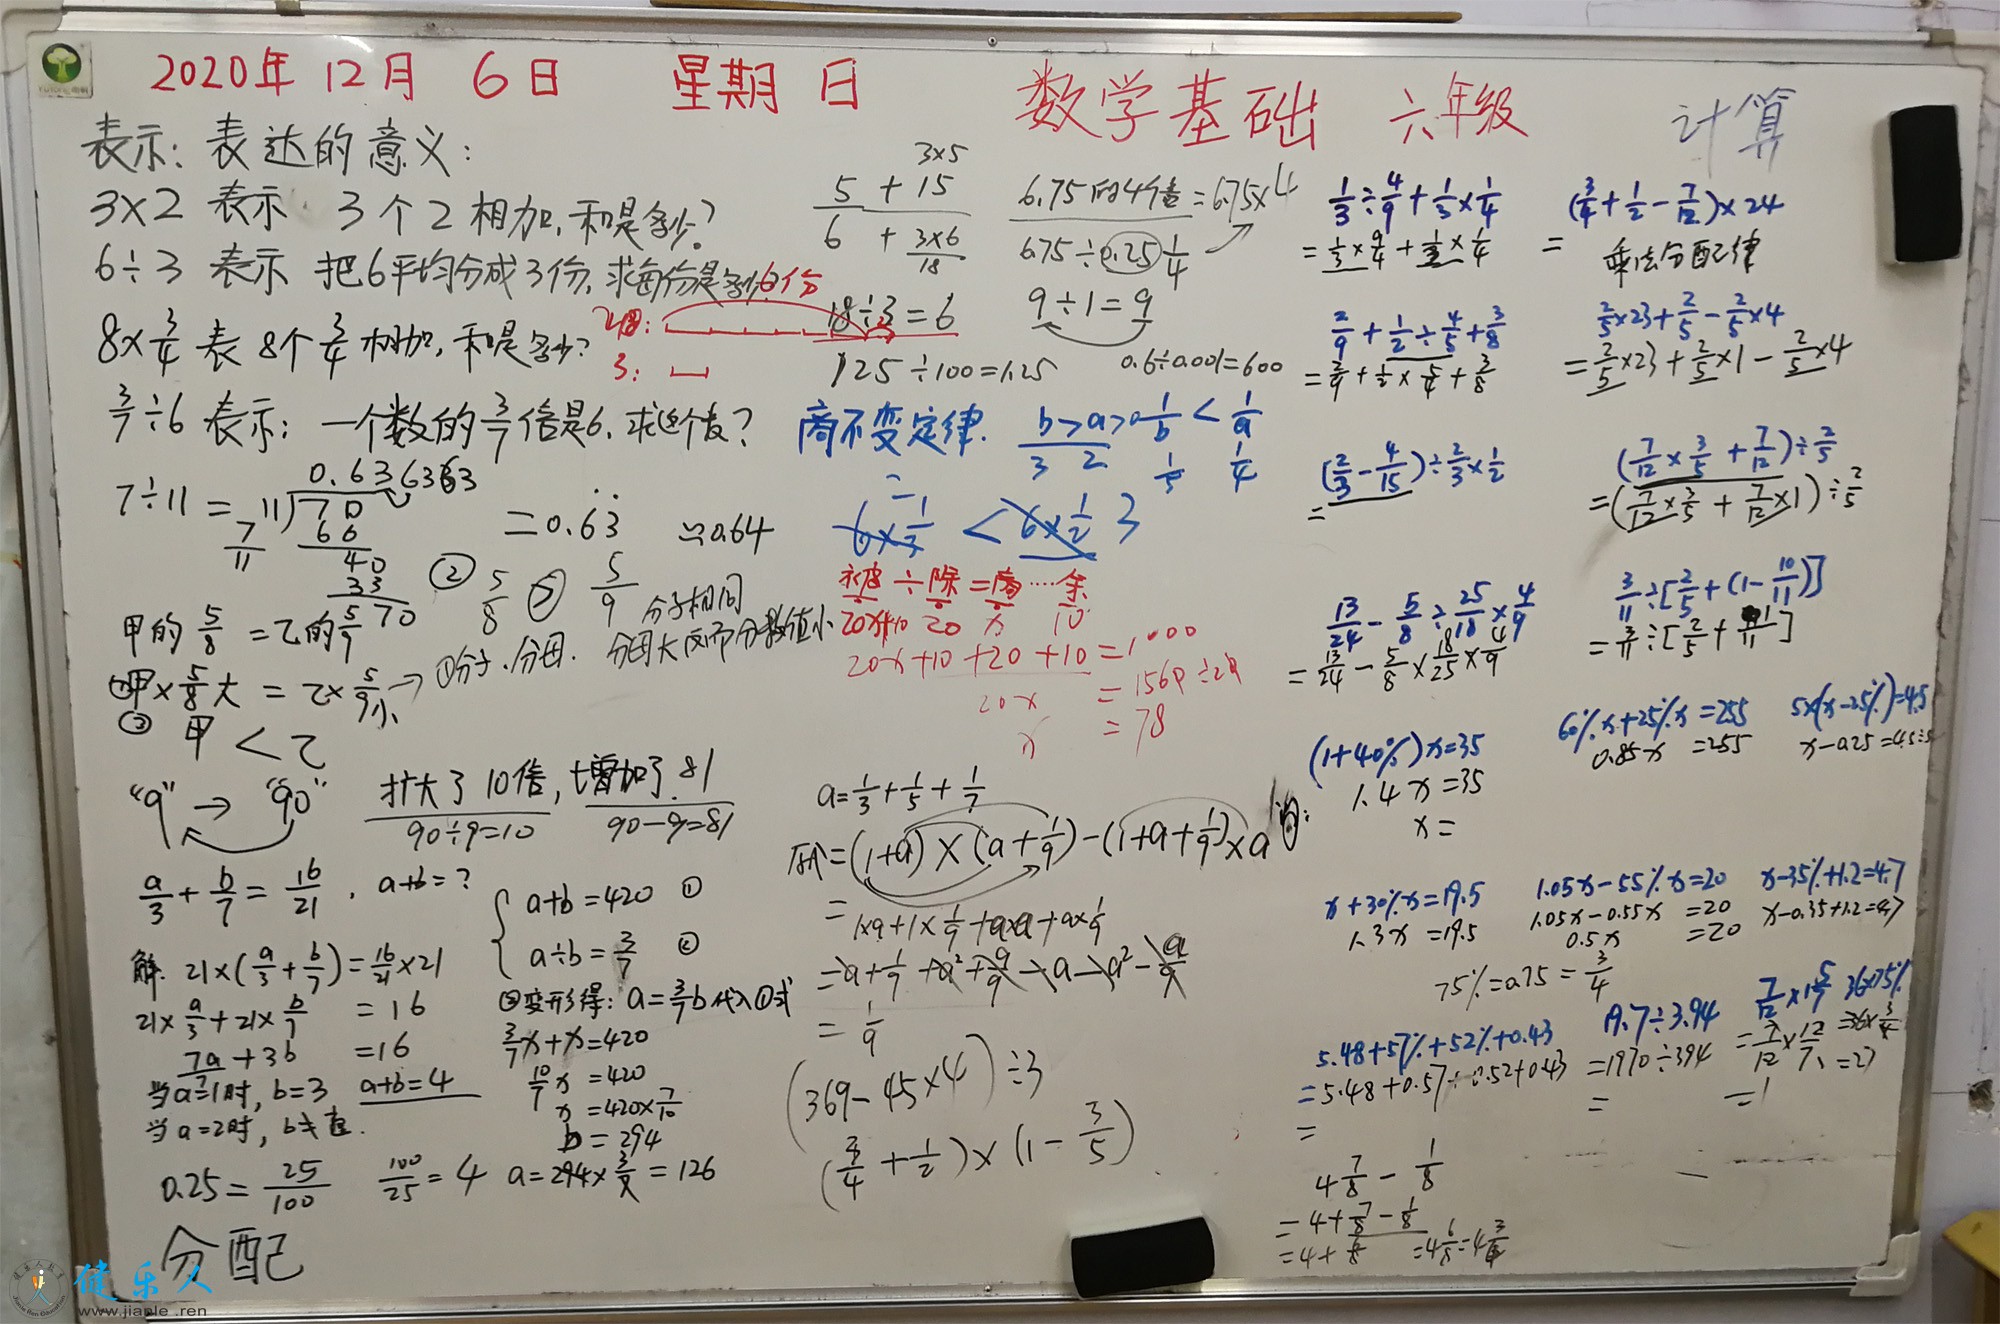 2020年12月 6日 星期 日 数学基础 六年级 计算
表示: 表达的意义:
3×2 表示 3个2相加,和是多少?
6÷3 表示 把6平均分成3份,求每份是多少? 6份
18:
3:
8×3/4 表 8个3/4相加,和是多少?
3/7÷6 表示: 一个数的3/7倍是6,求这个数?
7÷11 = 11)70 0.636363
7/11
66
40
33
70
=0.63 ≈0.64
② 5/8 > 5/9 分子相同
甲的5/8 =乙的5/9
①分子.分母. 分母大反而分数值小
①甲×5/8大 = 乙×5/9小
③ 甲<乙
"9" → "90" 扩大了10倍, 增加了81
90÷9=10 90-9=81
a/3 + b/7 = 16/21 , a+b=?
解. 21×(a/3+b/7)=16/21×21
21×a/3+21×b/7 =16
7a+3b =16
当a=1时, b=3 a+b=4
当a=2时, b
0.25=25/100 100/25=4
分配
a+b=420 ①
a÷b=3/7 ②
②变形得: a=3/7b代入①式
3/7x+x=420
10/7x =420
x =420×7/10
b =294
a=294×3/7=126
3×5
5 +15
6 +3×6
18
18÷3=6
125÷100=1.25
6.75的4倍=6.75×4
6.75÷0.25 1/4
9÷1=9
0.6÷0.001=600
商不变定律. b>a>0 1/b < 1/a
3 2 1/5 1/4
2
6×1/3 < 6×1/2 3
被÷除=商……余
20x+10 20 x 10
20x+10+20+10=1000
20x =1560÷20
x =78
a=1/3+1/5+1/7
原式=(1+a)×(a+1/9)-(1+a+1/9)×a
=1×a+1×1/9+a×a+a×1/9
=a+1/9+a²+a/9-a-a²-a/9
=1/9
(369-45×4)÷3
(3/4+1/2)×(1-3/5)
1/3÷4/9+1/3×1/4
=1/3×9/4+1/3×1/4
(3/4+1/2-7/12)×24
= 乘法分配律
2/9+1/2÷4/5+3/8
=2/9+1/2×5/4+3/8
2/5×23+2/5-2/5×4
=2/5×23+2/5×1-2/5×4
(2/3-4/15)÷2/3×1/2
=
(7/12×3/5+7/12)÷2/5
=(7/12×3/5+7/12×1)÷2/5
13/24-5/8÷25/18×4/9
=13/24-5/8×18/25×4/9
3/11÷[2/5+(1-10/11)]
=3/11÷[2/5+1/11]
(1+40%)x=35
1.4x=35
x=
60%x+25%x=255
0.85x =255
5×(x-25%)=4.5
x-0.25=4.5÷5
x+30%x=19.5
1.3x =19.5
1.05x-55%x=20
1.05x-0.55x =20
0.5x =20
x-35%+1.2=4.7
x-0.35+1.2=4.7
75%=0.75=3/4
5.48+57%+52%+0.43
=5.48+0.57+0.52+0.43
=
19.7÷3.94
=1970÷394
=
7/12×1 5/7
=7/12×12/7
=1
36×75%
=36×3/4
=27
4 7/8-1/8
=4+7/8-1/8
=4+6/8 =4 6/8=4 3/4
健乐人
www.jianle.ren